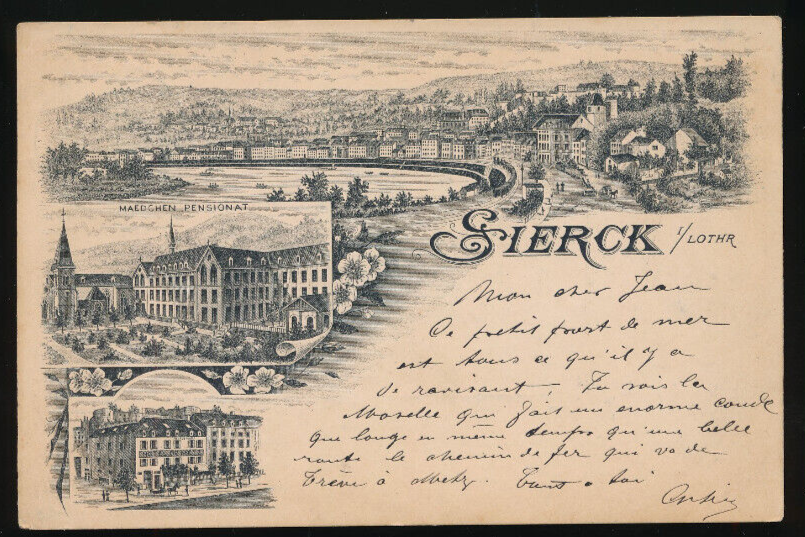 MAEDCHEN PENSIONAT
SIERCK I/LOTHR
Mon cher Jean
Ce petit port de mer
est tous ce qu'il y a
de ravissant. Tu vois la
Moselle qui fait un enorme coude
que longe en même temps qu'une belle
route le chemin de fer qui va de
Trève à Metz. Tout a toi